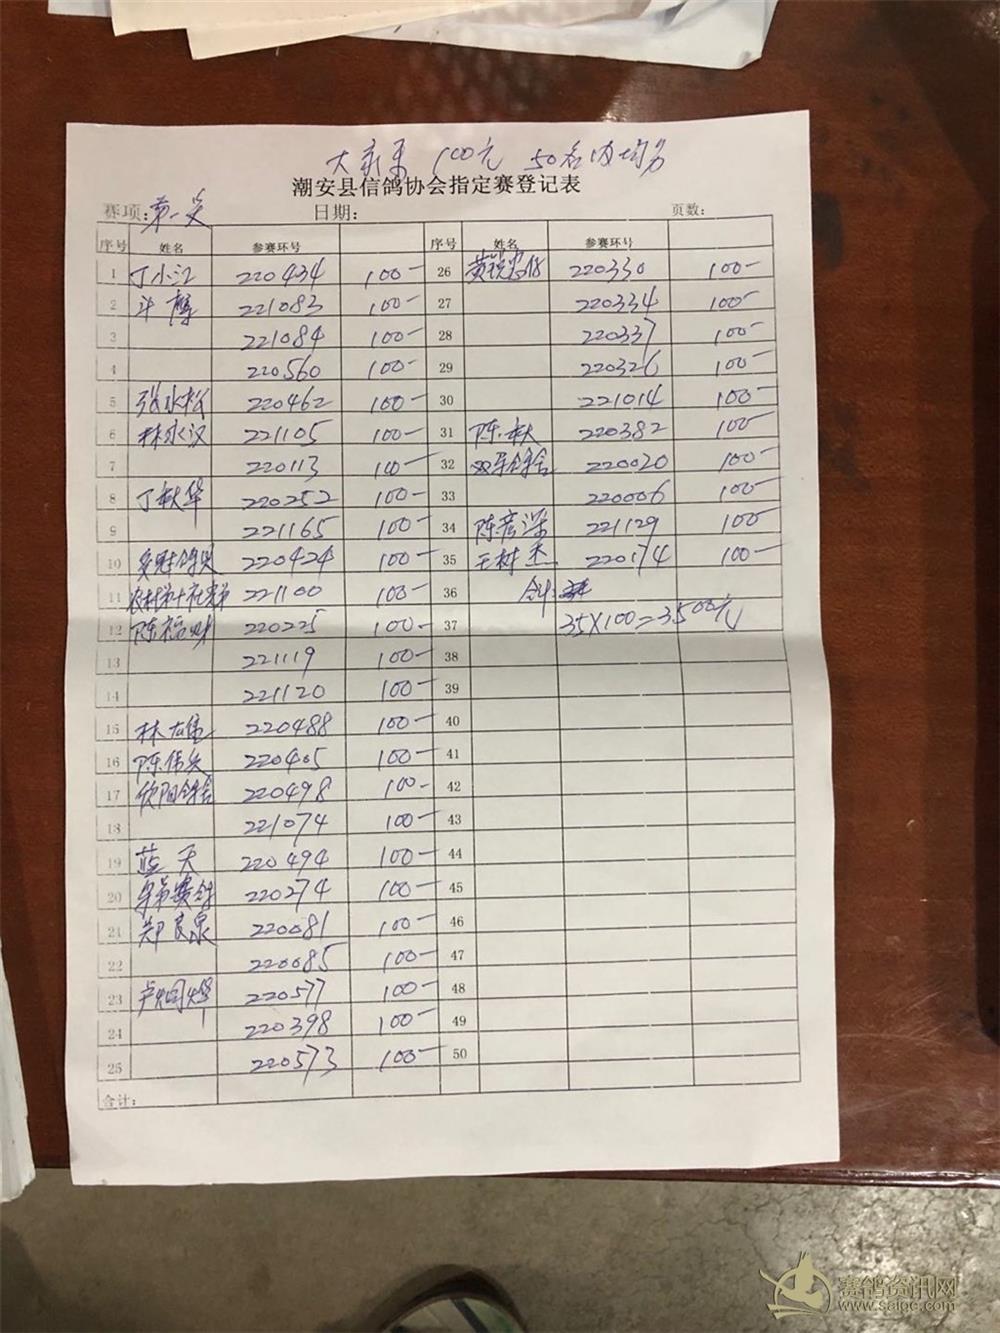 100元 50名内均分
潮安县信鸽协会指定赛登记表
赛项: 第一关 日期: 页数:
序号 姓名 参赛环号 序号 姓名 参赛环号
1 丁小江 220434 100- 26 220330 100-
2 221083 100- 27 220334 100-
3 221084 100- 28 220337 100-
4 220560 100- 29 220326 100-
5 张水松 220462 100- 30 221014 100-
6 林水汉 221105 100- 31 陈林大 220382 100-
7 220113 100- 32 220020 100-
8 丁秋华 220252 100- 33 220006 100-
9 221165 100- 34 陈彦深 221129 100-
10 220424 100- 35 王树杰 220174 100-
11 221100 100- 36 合计:
12 陈福财 220225 100- 37 35×100=3500元
13 221119 100- 38
14 221120 100- 39
15 林雄 220488 100- 40
16 陈伟兵 220405 100- 41
17 欣阳鸽舍 220498 100- 42
18 221074 100- 43
19 蓝天 220494 100- 44
20 220274 100- 45
21 郑良泉 220081 100- 46
22 220085 100- 47
23 220577 100- 48
24 220398 100- 49
25 220573 100- 50
合计:
赛鸽资讯网
www.saige.com